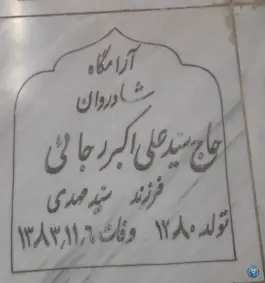 آرامگاه
شادروان
حاج سید علی اکبر رجائی
فرزند سید مهدی
تولد ۱۲۸۰ وفات ۱۳۸۳/۱۱/۶